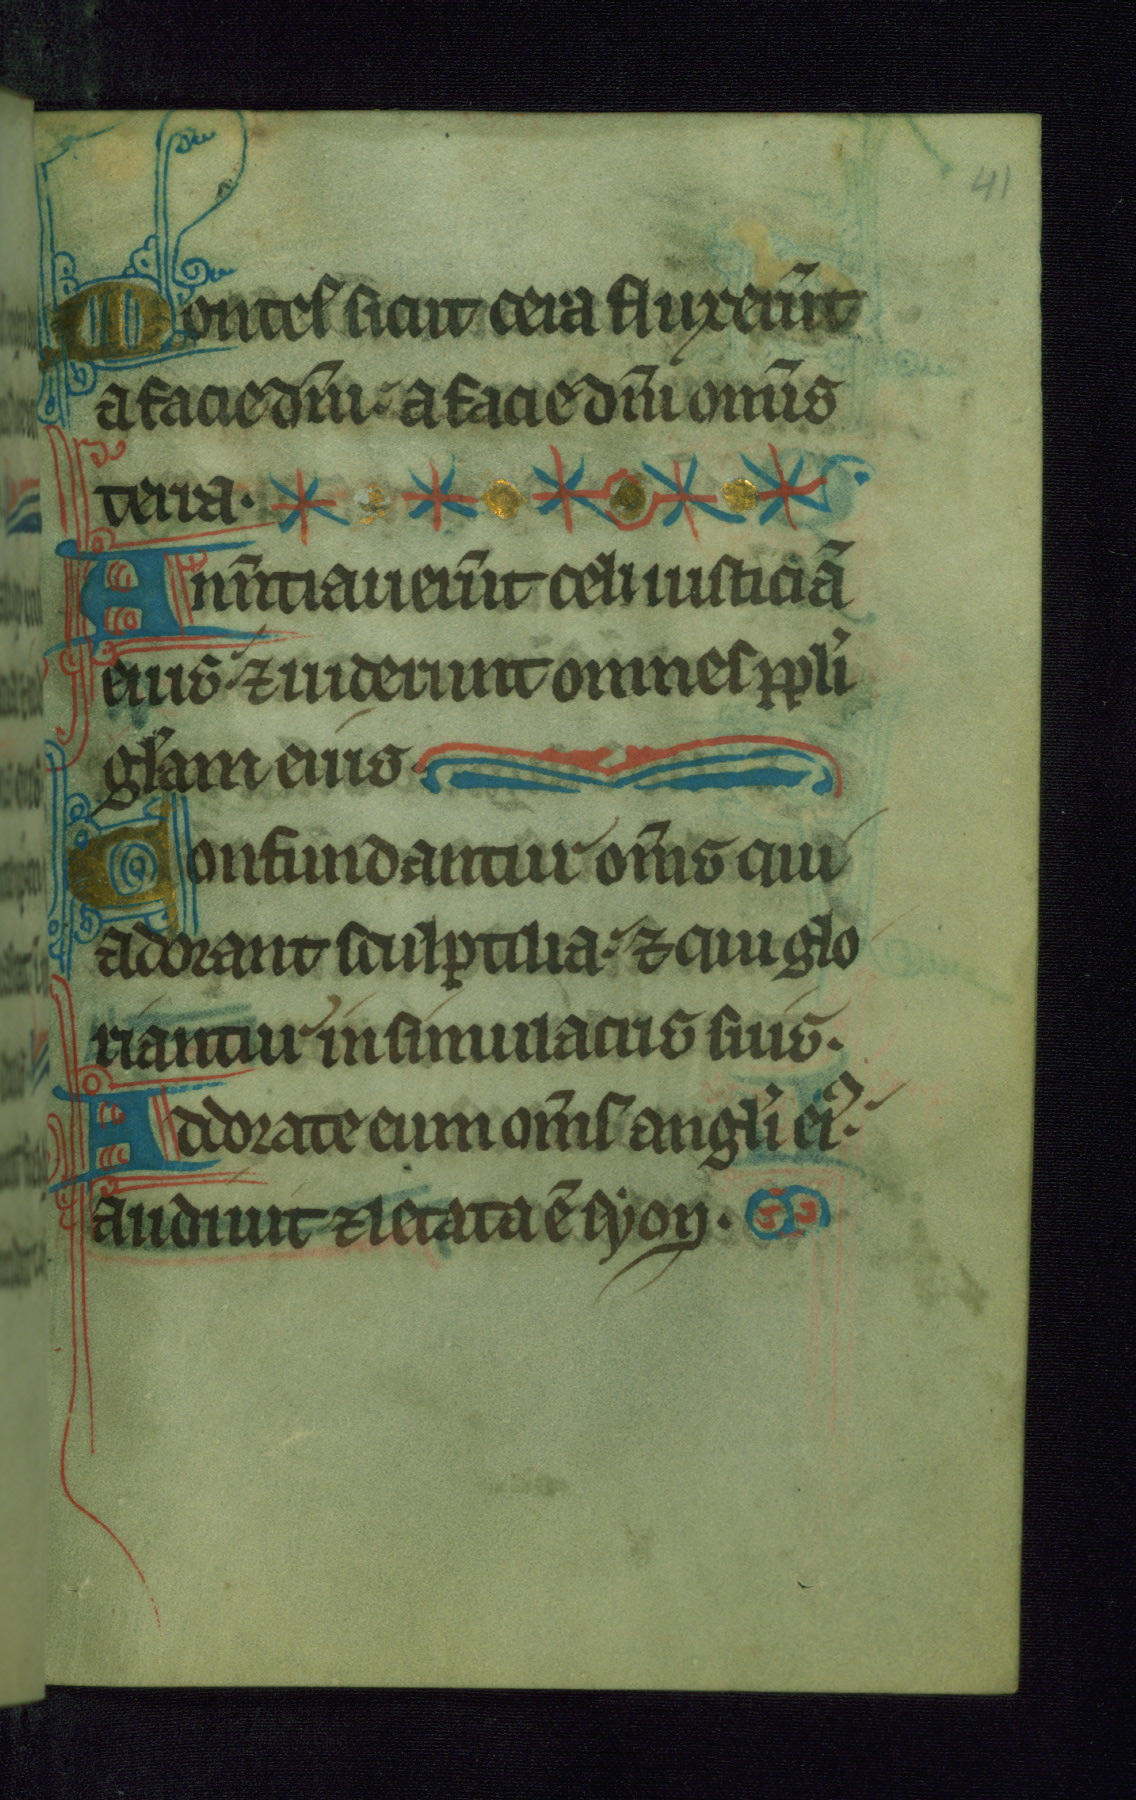 41
Montes sicut cera fluxerūt
a facie dn̄i· a facie dn̄i om̄is
terra·
Anūtiauerūt celi iusticiā
eius· ⁊ uiderunt omnes ppl̄i
gl̄am eius·
Confundantur om̄is qui
adorant sculptilia· ⁊ qui glo
riantur in simulacris suis·
Adorate eum om̄s angl̄i ei⁹·
audiuit ⁊ letata ē syon·